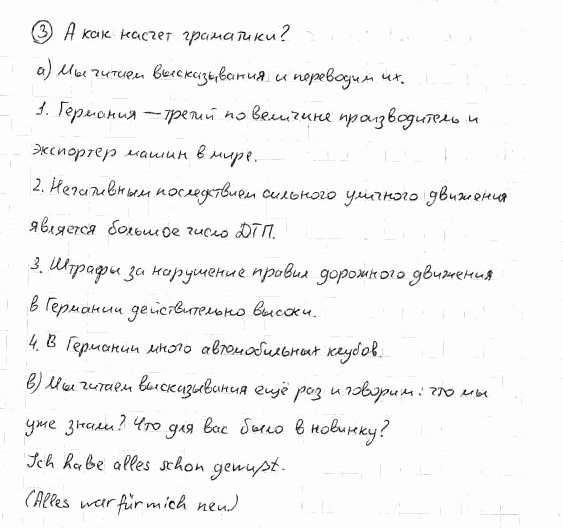 ③ А как насчет граматики?
а) Мы читаем высказывания и переводим их.
1. Германия — третий по величине производитель и
экспортер машин в мире.
2. Негативным последствием сильного уличного движения
является большое число ДТП.
3. Штрафы за нарушение правил дорожного движения
в Германии действительно высоки.
4. В Германии много автомобильных клубов.
в) Мы читаем высказывания ещё раз и говорим: что мы
уже знали? Что для вас было в новинку?
Ich habe alles schon gewußt.
(Alles war für mich neu)